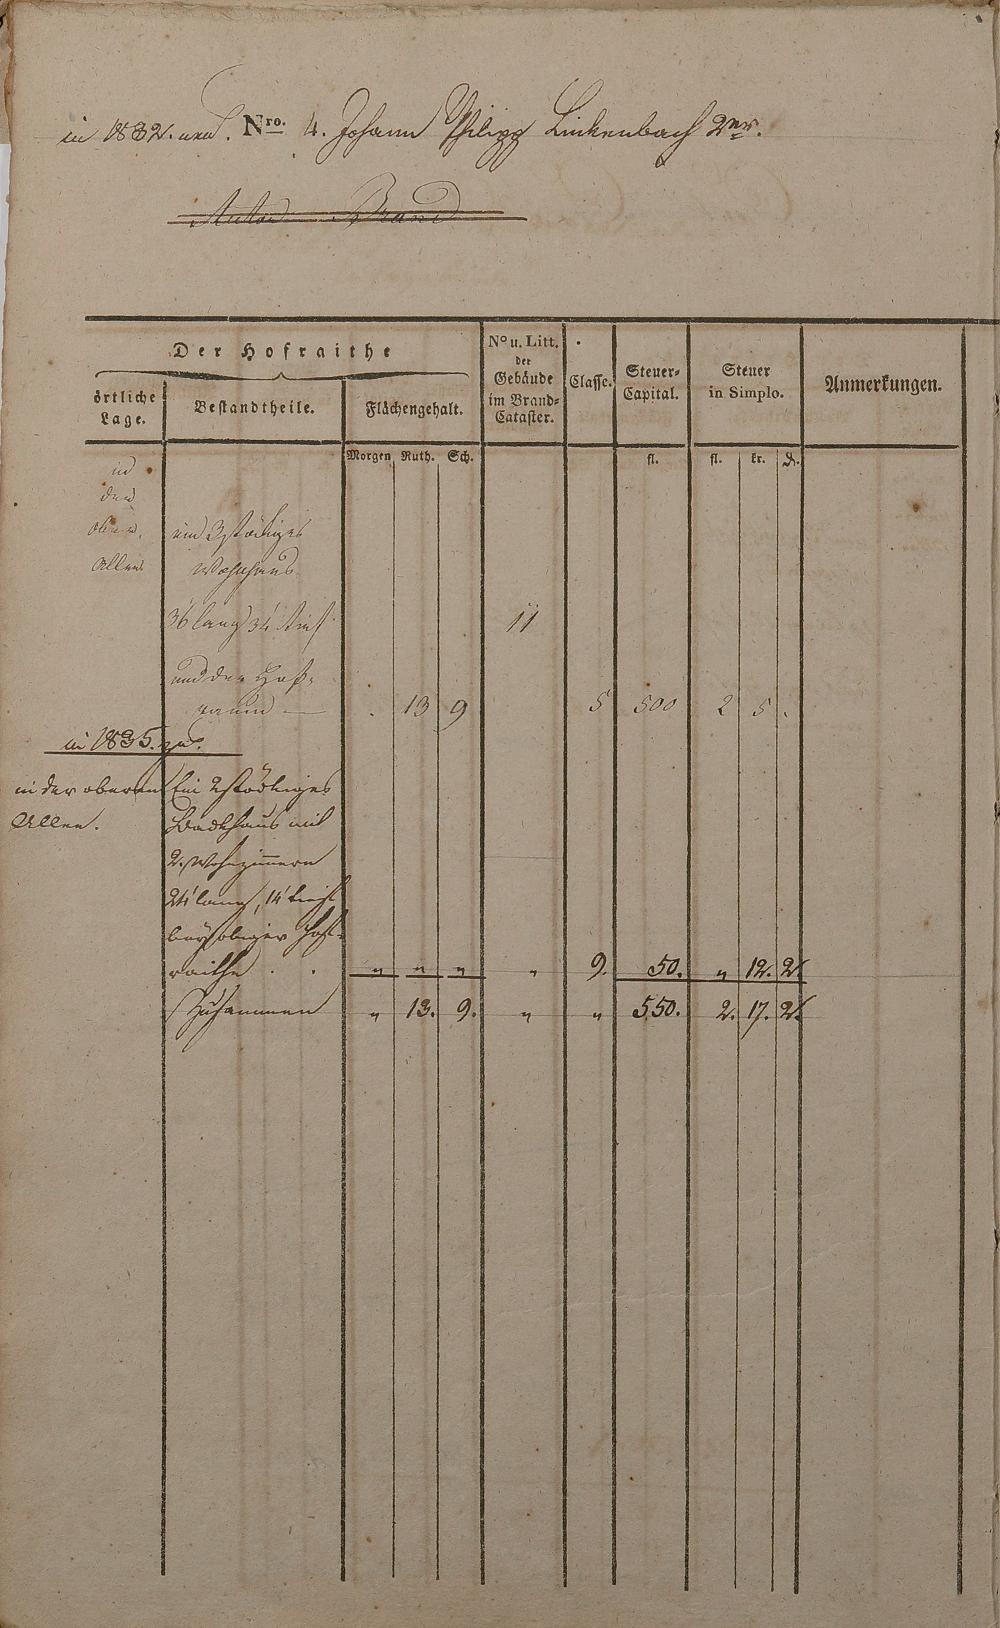 in 1832. und. Nro. 4. Johann Philipp Linkenbach 2ter.
Anton Brand
Der Hofraithe
örtliche Lage.
Bestandtheile.
Flächengehalt.
No u. Litt. der Gebäude im Brand-Cataster.
Classe.
Steuer-Capital.
Steuer in Simplo.
Anmerkungen.
Morgen Ruth. Sch. fl. fl. kr. d.
in
der
obern
Allee
ein 3stöckiges
Wohnhaus
36' lang 34' tief 11
und der Hof-
raum — . 13 9 5 500 2 5 .
in 1835. zu.
in der oberen Ein 2stöckiges
Allee. Backhaus mit
2. Wohnzimmern
24' lang, 14' tief
bey obiger Hof-
raithe . . " " " " 9. 50. " 12. 2.
Zusammen " 13. 9. " " 550. 2. 17. 2.